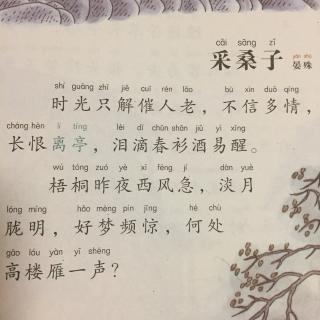 cǎi sāng zǐ
采桑子 yàn shū
晏殊
shí guāng zhǐ jiě cuī rén lǎo bù xìn duō qíng
时光只解催人老，不信多情，
cháng hèn lí tíng lèi dī chūn shān jiǔ yì xǐng
长恨离亭，泪滴春衫酒易醒。
wú tóng zuó yè xī fēng jí dàn yuè
梧桐昨夜西风急，淡月
lóng míng hǎo mèng pín jīng hé chù
胧明，好梦频惊，何处
gāo lóu yàn yī shēng
高楼雁一声？